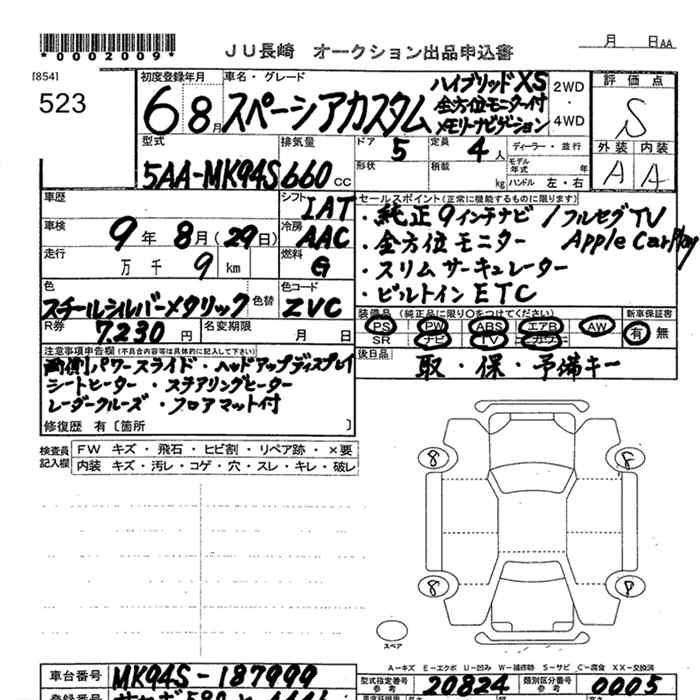 月 日AA
*0002009* JU長崎 オークション出品申込書
[854]
523
初度登録年月 6 8月
車名・グレード スペーシアカスタム ハイブリッドXS 全方位モニター付 メモリーナビゲーション
2WD ・ 4WD
評価点 S
外装 内装
A A
型式 5AA-MK94S
排気量 660 cc
ドア 5
定員 4人
形状
積載 kg
ディーラー・並行
モデル年式 年
ハンドル 左・右
車歴
シフト IAT
車検 9年 8月(29日)
冷房 AAC
走行 万 千 9 km
燃料 G
色 スチールシルバーメタリック 色替
色コード ZVC
R券 7.230 円
名変期限 月 日
セールスポイント(正常に機能するものに限ります)
・純正9インチナビ/フルセグTV
・全方位モニター Apple CarPlay
・スリムサーキュレーター
・ビルトインETC
装備品(純正品に限り〇をつけてください) 新車保証書
PS PW ABS エアB AW 有 無
SR ナビ TV
後日品 取・保・予備キー
注意事項申告欄(不具合内容等は具体的に記入して下さい)
両側パワースライド・ヘッドアップディスプレイ
シートヒーター・ステアリングヒーター
レーダークルーズ・フロアマット付
修復歴 有〔箇所 〕
検査員記入欄
FW キズ・飛石・ヒビ割・リペア跡・×要
内装 キズ・汚レ・コゲ・穴・スレ・キレ・破レ
8 8
8 8
スペア
A－キズ E－エクボ U－凹み W－補修跡 S－サビ C－腐食 XX－交換済
車台番号 MK94S-187999
型式指定番号 参考 20824
類別区分番号 参考 0005
登録番号